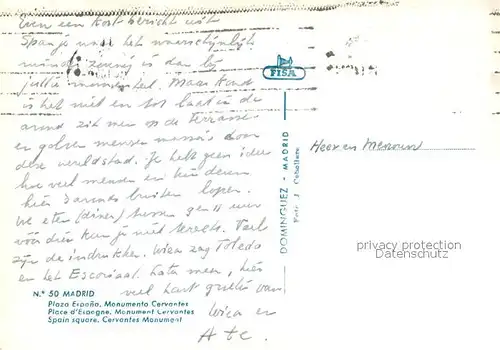 even een kort bericht uit
Spanje waar het waarschijnlijk
minder zonnig is dan bij
jullie momenteel. Maar koud
is het niet en tot laat in de
avond zit men op de terrassen
en golven mensen massa's door
deze wereldstad. Je hebt geen idee
hoe veel mensen en kinderen
hier 's avonds buiten lopen.
We eten (diner) tussen 9 en 11 uur
vóór dien kun je niet terecht. Veel
zijn de indrukken. Wien zag Toledo
en het Escoriaal. Later meer, hier
veel hart. groeten van
Wien en
Ate.
FISA
Heer en Mevrouw
DOMINGUEZ - MADRID
Foto J. Cebollero
N.º 50 MADRID
Plaza España, Monumento Cervantes
Place d'Espagne, Monument Cervantes
Spain square, Cervantes Monument
privacy protection
Datenschutz